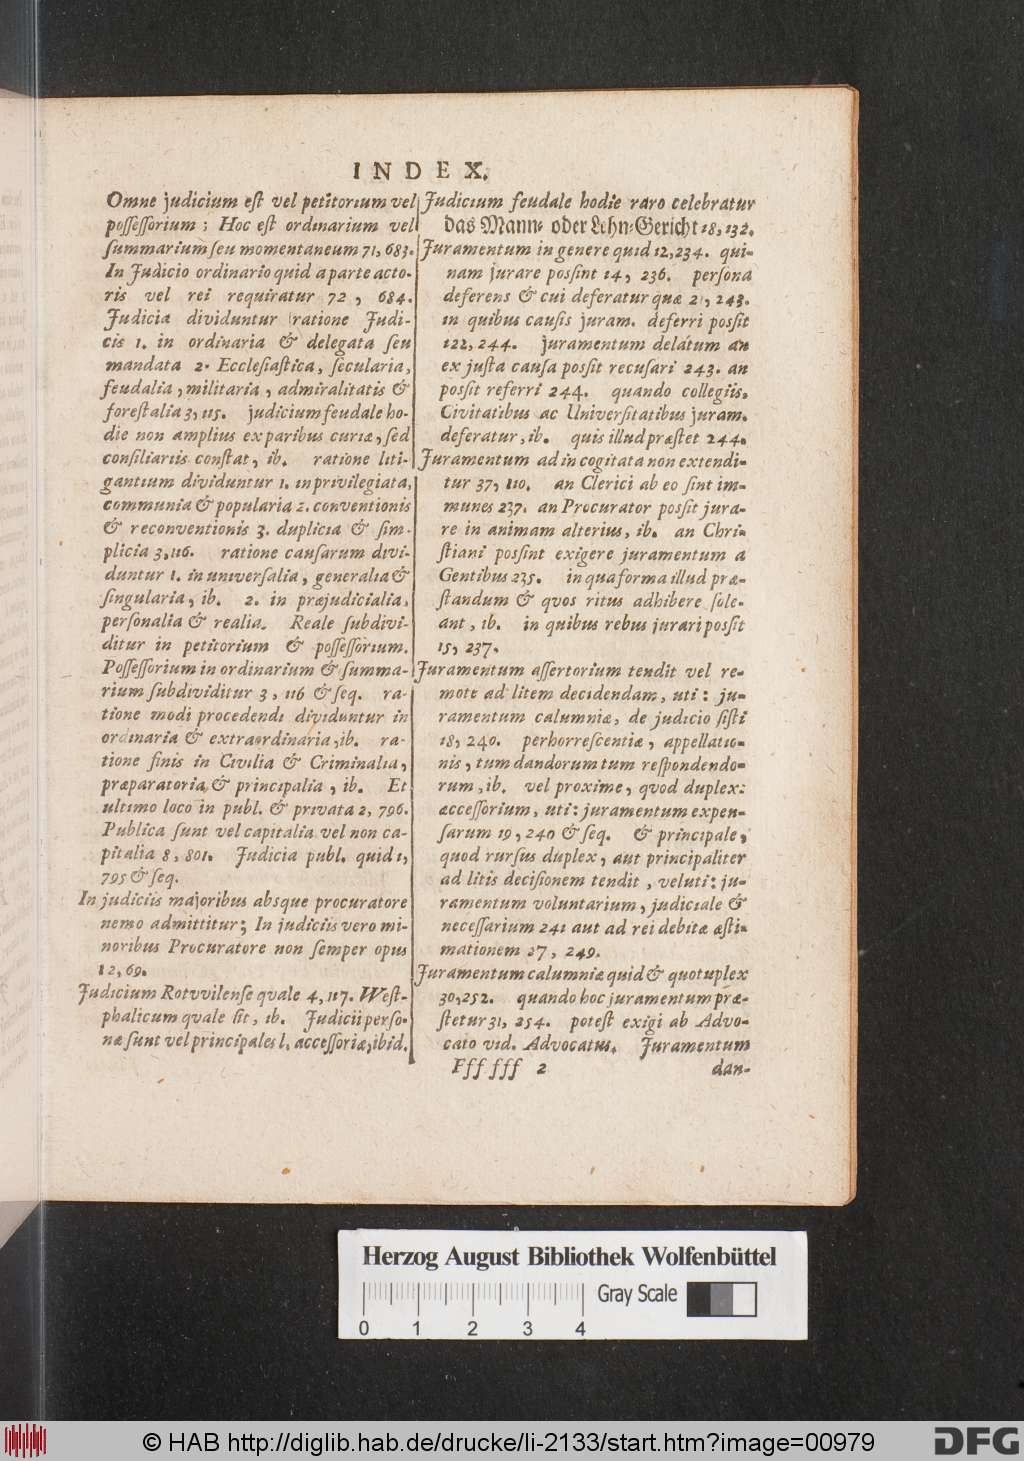 INDEX.
Omne judicium est vel petitorium vel
possessorium; Hoc est ordinarium vel
summarium seu momentaneum 71, 683.
In Judicio ordinario quid a parte acto-
ris vel rei requiratur 72, 684.
Judicia dividuntur ratione Judi-
cis 1. in ordinaria & delegata seu
mandata 2. Ecclesiastica, secularia,
feudalia, militaria, admiralitatis &
forestalia 3, 115. judicium feudale ho-
die non amplius ex paribus curiæ, sed
consiliariis constat, ib. ratione liti-
gantium dividuntur 1. in privilegiata,
communia & popularia 2. conventionis
& reconventionis 3. duplicia & sim-
plicia 3, 116. ratione causarum divi-
duntur 1. in universalia, generalia &
singularia, ib. 2. in præjudicialia,
personalia & realia. Reale subdivi-
ditur in petitorium & possessorium.
Possessorium in ordinarium & summa-
rium subdividitur 3, 116 & seq. ra-
tione modi procedendi dividuntur in
ordinaria & extraordinaria, ib. ra-
tione finis in Civilia & Criminalia,
præparatoria & principalia, ib. Et
ultimo loco in publ. & privata 2, 796.
Publica sunt vel capitalia vel non ca-
pitalia 8, 801. Judicia publ. quid 1,
795 & seq.
In judiciis majoribus absque procuratore
nemo admittitur; In judiciis vero mi-
noribus Procuratore non semper opus
12, 69.
Judicium Rotvvilense qvale 4, 117. West-
phalicum qvale sit, ib. Judicii perso-
næ sunt vel principales l. accessoriæ, ibid.
Judicium feudale hodie raro celebratur
das Mann- oder Lehn-Gericht 18, 132.
Juramentum in genere quid 12, 234. qui-
nam jurare possint 14, 236. persona
deferens & cui deferatur quæ 21, 243.
in quibus causis juram. deferri possit
122, 244. juramentum delatum an
ex justa causa possit recusari 243. an
possit referri 244. quando collegiis,
Civitatibus ac Universitatibus juram.
deferatur, ib. quis illud præstet 244.
Juramentum ad incogitata non extendi-
tur 37, 110. an Clerici ab eo sint im-
munes 237. an Procurator possit jura-
re in animam alterius, ib. an Chri-
stiani possint exigere juramentum a
Gentibus 235. in qua forma illud præ-
standum & qvos ritus adhibere sole-
ant, ib. in quibus rebus jurari possit
15, 237.
Juramentum assertorium tendit vel re-
mote ad litem decidendam, uti: ju-
ramentum calumniæ, de judicio sisti
18, 240. perhorrescentiæ, appellatio-
nis, tum dandorum tum respondendo-
rum, ib. vel proxime, qvod duplex:
accessorium, uti: juramentum expen-
sarum 19, 240 & seq. & principale,
quod rursus duplex, aut principaliter
ad litis decisionem tendit, veluti: ju-
ramentum voluntarium, judiciale &
necessarium 241 aut ad rei debitæ æsti-
mationem 27, 249.
Juramentum calumniæ quid & quotuplex
30, 252. quando hoc juramentum præ-
stetur 31, 254. potest exigi ab Advo-
cato vid. Advocatus. Juramentum
Fff fff 2 dan-
Herzog August Bibliothek Wolfenbüttel
Gray Scale
0 1 2 3 4
© HAB http://diglib.hab.de/drucke/li-2133/start.htm?image=00979
DFG